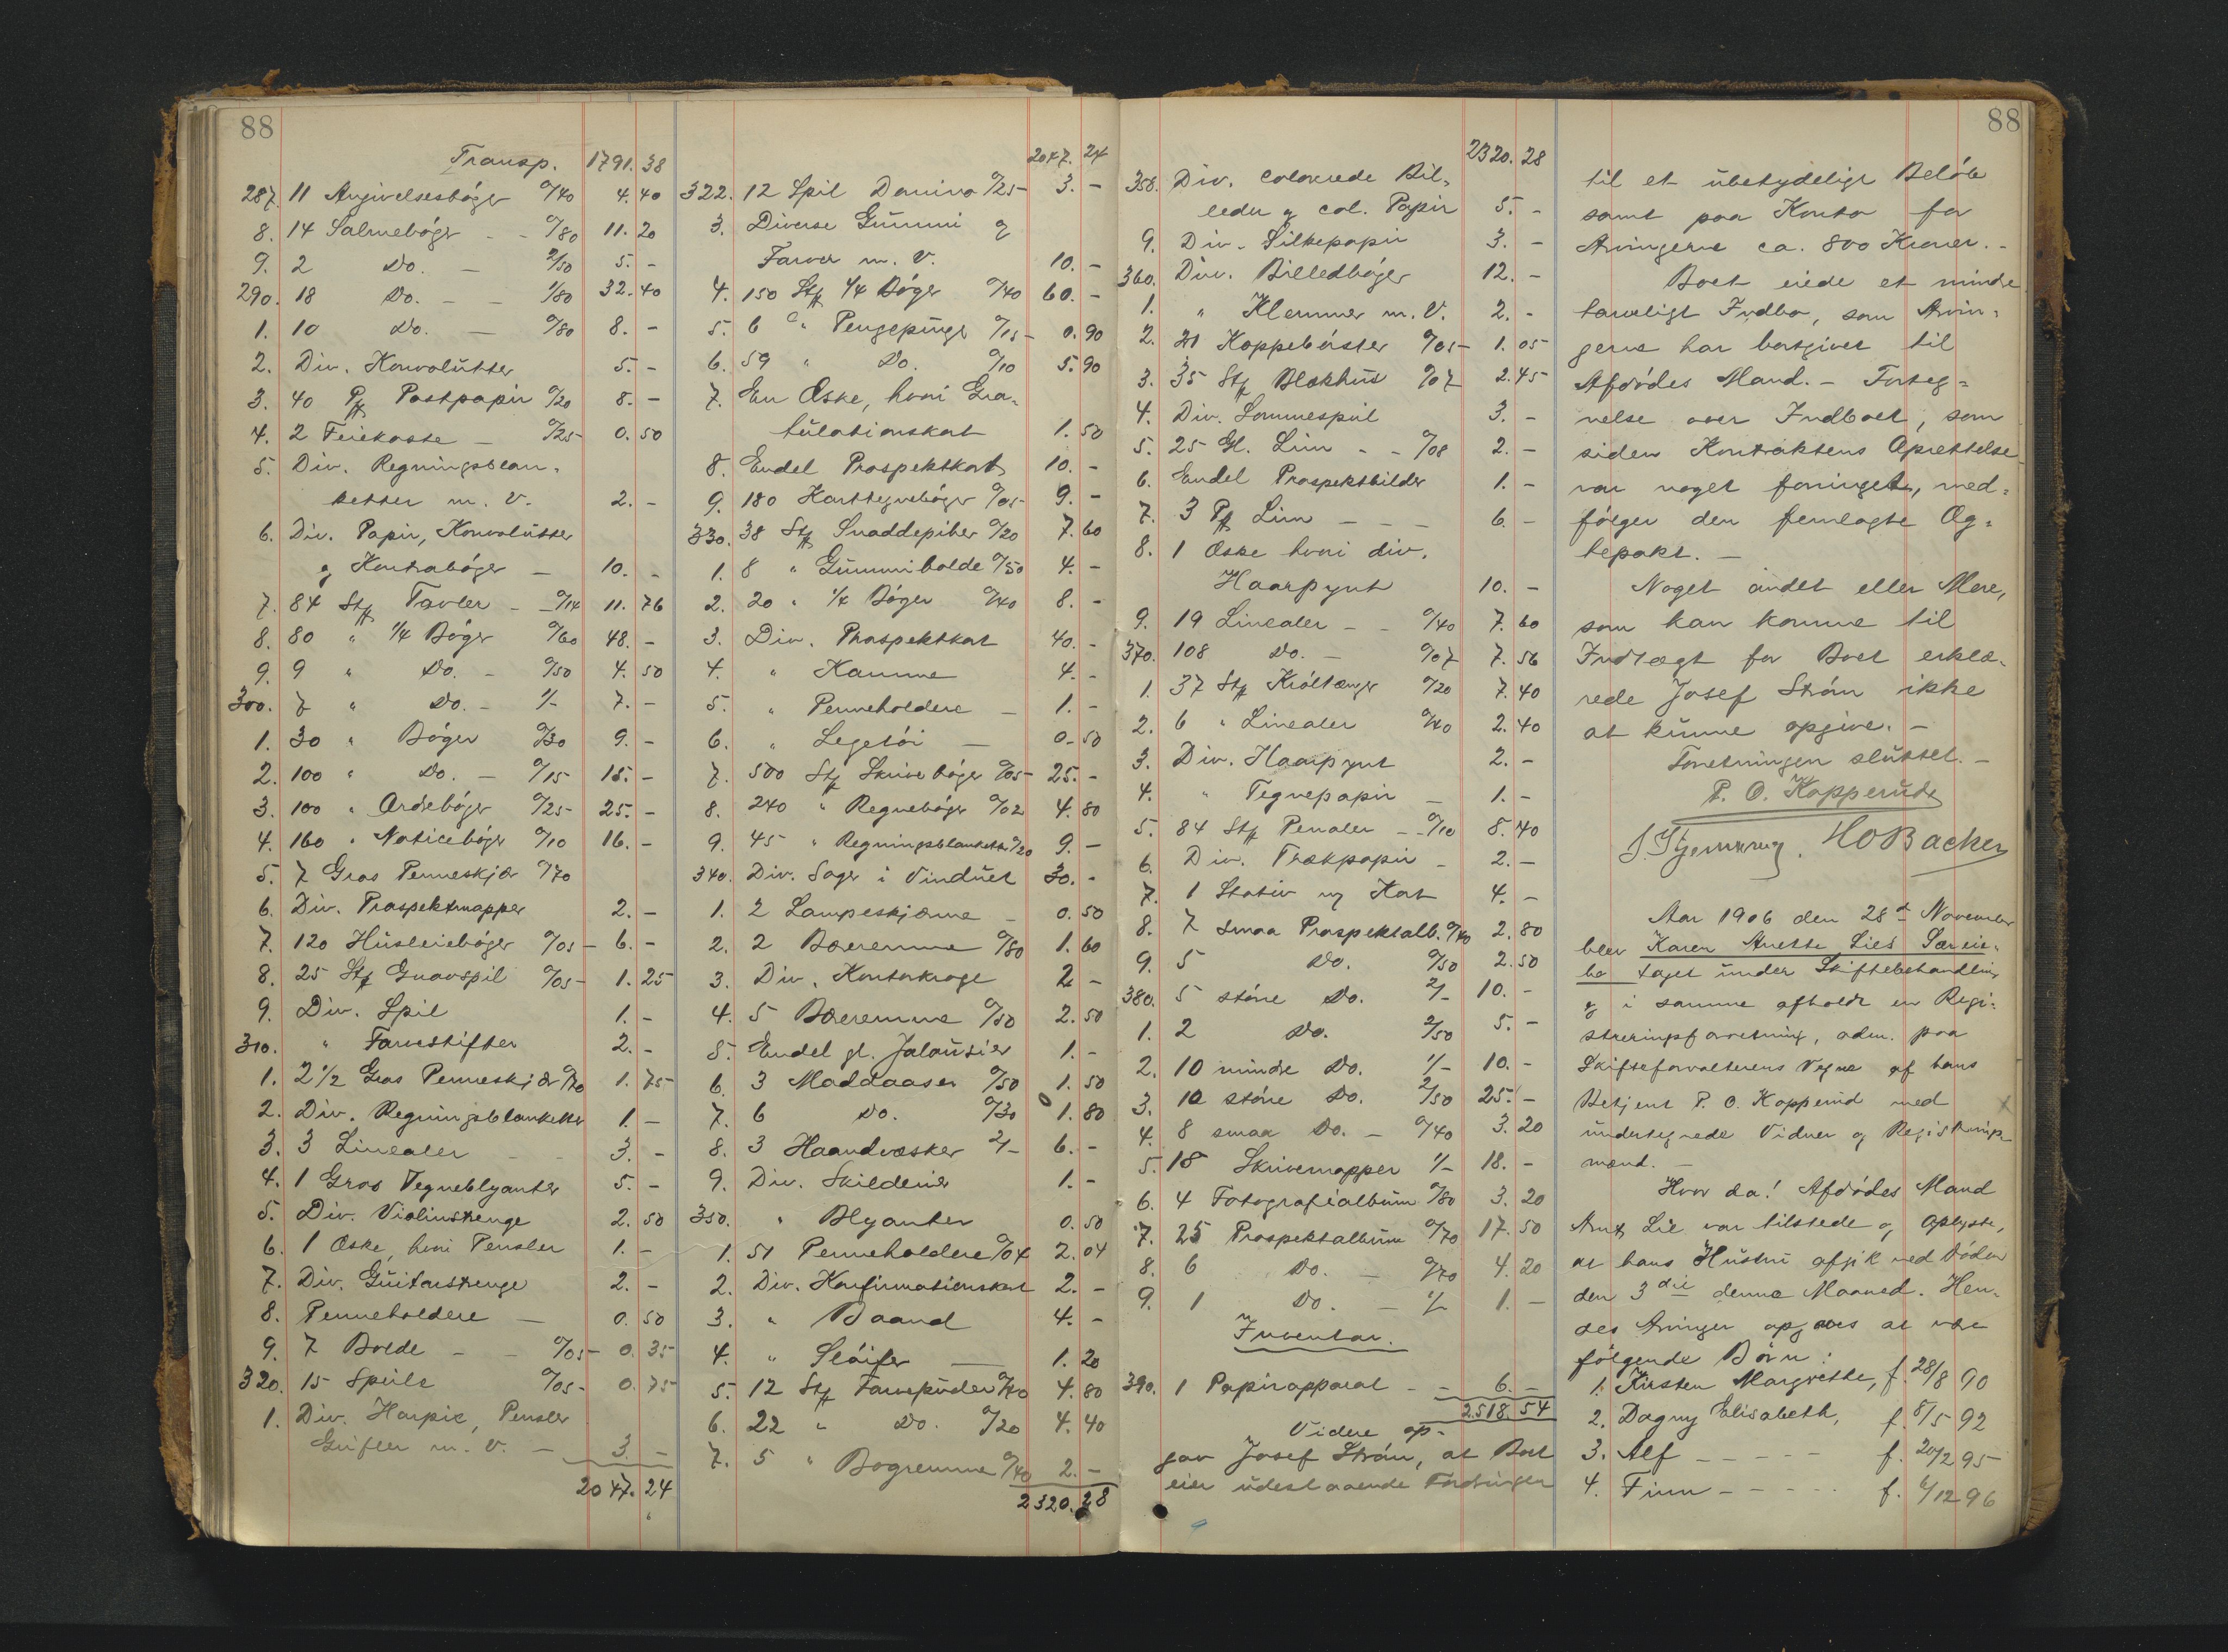 88
Transp. 1791. 38
287. 11 Angivelsesbøger 0/40 4. 40
8. 14 Salmebøger - - 0/80 11. 20
9. 2 Do. - 2/50 5. -
290. 18 Do. - - 1/80 32. 40
1. 10 Do. - 0/80 8. -
2. Div. Konvolutter 5. -
3. 40 Pk Postpapir 0/20 8. -
4. 2 Feiekoste - 0/25 0. 50
5. Div. Regningsblan-
ketter m. V. 2. -
6. Div. Papir, Konvolutter
og Kontrabøger - 10. -
7. 84 Stk Tavler - 0/14 11. 76
8. 80 " 1/4 Bøger 0/60 48. -
9. 9 " Do. - 0/50 4. 50
300. 7 " Do. - 1/- 7. -
1. 30 " Bøger 0/30 9. -
2. 100 " Do. - 0/15 15. -
3. 100 " Ordrebøger 0/25 25. -
4. 160 " Noticebøger 0/10 16. -
5. 7 Gros Penneskjær 0/70
6. Div. Prospektmapper 2. -
7. 120 Husleiebøger 0/05 - 6. -
8. 25 Stk Gnavspil 0/05 - 1. 25
9. Div. Spil 1. -
310. " Farvestifter 2. -
1. 2 1/2 Gros Penneskjær 0/70 1. 75
2. Div. Regningsblanketter 1. -
3. 3 Linealer - - 3. -
4. 1 Gros Tegneblyanter 5. -
5. Div. Violinstrenge 2. 50
6. 1 Æske, hvori Pensler 1. -
7. Div. Guitarstrenge 2. -
8. Penneholdere - 0. 50
9. 7 Bolde - - 0/05 - 0. 35
320. 15 Speile 0/05 - 0. 75
1. Div. Harpix, Pensler
Grifler m. V. - 3. -
2047. 24
2047. 24
322. 12 Spil Domino 0/25 - 3. -
3. Diverse Gummi og
Farver m. V. 10. -
4. 150 Stk 1/4 Bøger 0/40 60. -
5. 6 " Pengepunge 0/15 - 0. 90
6. 59 " Do. 0/10 5. 90
7. En Æske, hvori Gra-
tulationskort 1. 50
8. Endel Prospektkort 10. -
9. 180 Karttegnebøger 0/05 - 9. -
330. 38 Stk Snaddepiber 0/20 7. 60
1. 8 " Gummibolde 0/50 4. -
2. 20 " 1/4 Bøger 0/40 8. -
3. Div. Prospektkort 40. -
4. " Kamme 4. -
5. " Penneholdere - 1. -
6. " Legetøi - 0. 50
7. 500 Stk Skrivebøger 0/05 - 25. -
8. 240 " Regnebøger 0/02 4. 80
9. 45 " Regningsblanketter 0/20 9. -
340. Div. Sager i Vinduet 30. -
1. 2 Lampeskjærme - 0. 50
2. 2 Bæreremme 0/80 1. 60
3. Div. Kontorkroge 2. -
4. 5 Bæreremme 0/50 2. 50
5. Endel gl. Jalousier 1. -
6. 3 Maddaaser 0/50 1. 50
7. 6 Do. 0/30 1. 80
8. 3 Haandvæsker 2/- 6. -
9. Div. Skilderier 1. -
350. " Blyanter 0. 50
1. 51 Penneholdere 0/04 2. 04
2. Div. Konfirmationskort 2. -
3. " Baand 4. -
4. " Sløifer - 1. 20
5. 12 Stk Farvepuder 0/40 4. 80
6. 22 " Do. 0/20 4. 40
7. 5 " Bogremme 0/40 2. -
2320. 28
2320. 28
358. Div. colorerede Bil-
leder og col. Papir 5. -
9. Div. Silkepapir 3. -
360. Div. Billedbøger 12. -
1. " Klemmer m. V. 2. -
2. 21 Koppebørster 0/05 - 1. 05
3. 35 Stk Blækhus 0/07 2. 45
4. Div. Lommespeil 3. -
5. 25 Gl. Lim - - 0/08 2. -
6. Endel Prospektbilder 1. -
7. 3 Pk Lim - - - 6. -
8. 1 Æske hvori div.
Haarpynt 10. -
9. 19 Linealer - - 0/40 7. 60
370. 108 Do. - 0/07 7. 56
1. 37 Stk Krøltænger 0/20 7. 40
2. 6 " Linealer 0/40 2. 40
3. Div. Haarpynt 2. -
4. " Tegnepapir - 1. -
5. 84 Stk Penaler - - 0/10 8. 40
6. Div. Trækpapir - 2. -
7. 1 Stativ og Kort 4. -
8. 7 smaa Prospektalb. 0/40 2. 80
9. 5 Do. 0/50 2. 50
380. 5 større Do. 2/- 10. -
1. 2 Do. 2/50 5. -
2. 10 mindre Do. 1/- 10. -
3. 10 større Do. 2/50 25. -
4. 8 smaa Do. - 0/40 3. 20
5. 18 Skrivemapper 1/- 18. -
6. 4 Fotografialbum 0/80 3. 20
7. 25 Prospektalbum 0/70 17. 50
8. 6 Do. - 0/70 4. 20
9. 1 Do. - 1/- 1. -
Inventar.
390. 1 Papirapparat - - 6. -
2518. 54
Videre op-
gav Josef Strøm, at Boet
eier udestaaende Fordringer
88
til et ubetydeligt Beløb
samt paa Konto for
Arvingerne ca. 800 Kroner. -
Boet eiede et mindre
tarveligt Indbo, som Arvin-
gerne har bortgivet til
Afdødes Mand. - Forteg-
nelse over Indboet, som
siden Kontraktens Oprettelse
var noget foringet, med-
følger den fremlagte Æg-
tepakt. -
Noget andet eller Mere,
som kan komme til
Indtægt for Boet erklæ-
rede Josef Strøm ikke
at kunne opgive. -
Forretningen sluttet. -
P. O. Kopperud
HO Backer
Aar 1906 den 28de November
blev Karen Anette Lies Særeie-
bo taget under Skiftebehandling
og i samme afholdt en Regi-
streringsforretning, adm. paa
Skifteforvalterens Vegne af hans
Betjent P. O. Kopperud med
undertegnede Vidner og Registrerings-
mænd. -
Hvor da! Afdødes Mand
Arnt Lie var tilstede og oplyste,
at hans Hustru afgik ved Døden
den 3die denne Maaned. Hen-
des Arvinger opgaves at være
følgende Børn:
1. Kirsten Margrethe, f. 28/8 90
2. Dagny Elisabeth, f. 8/5 92
3. Alf - - - - - f. 20/2 95
4. Finn - - - - - f. 6/12 96